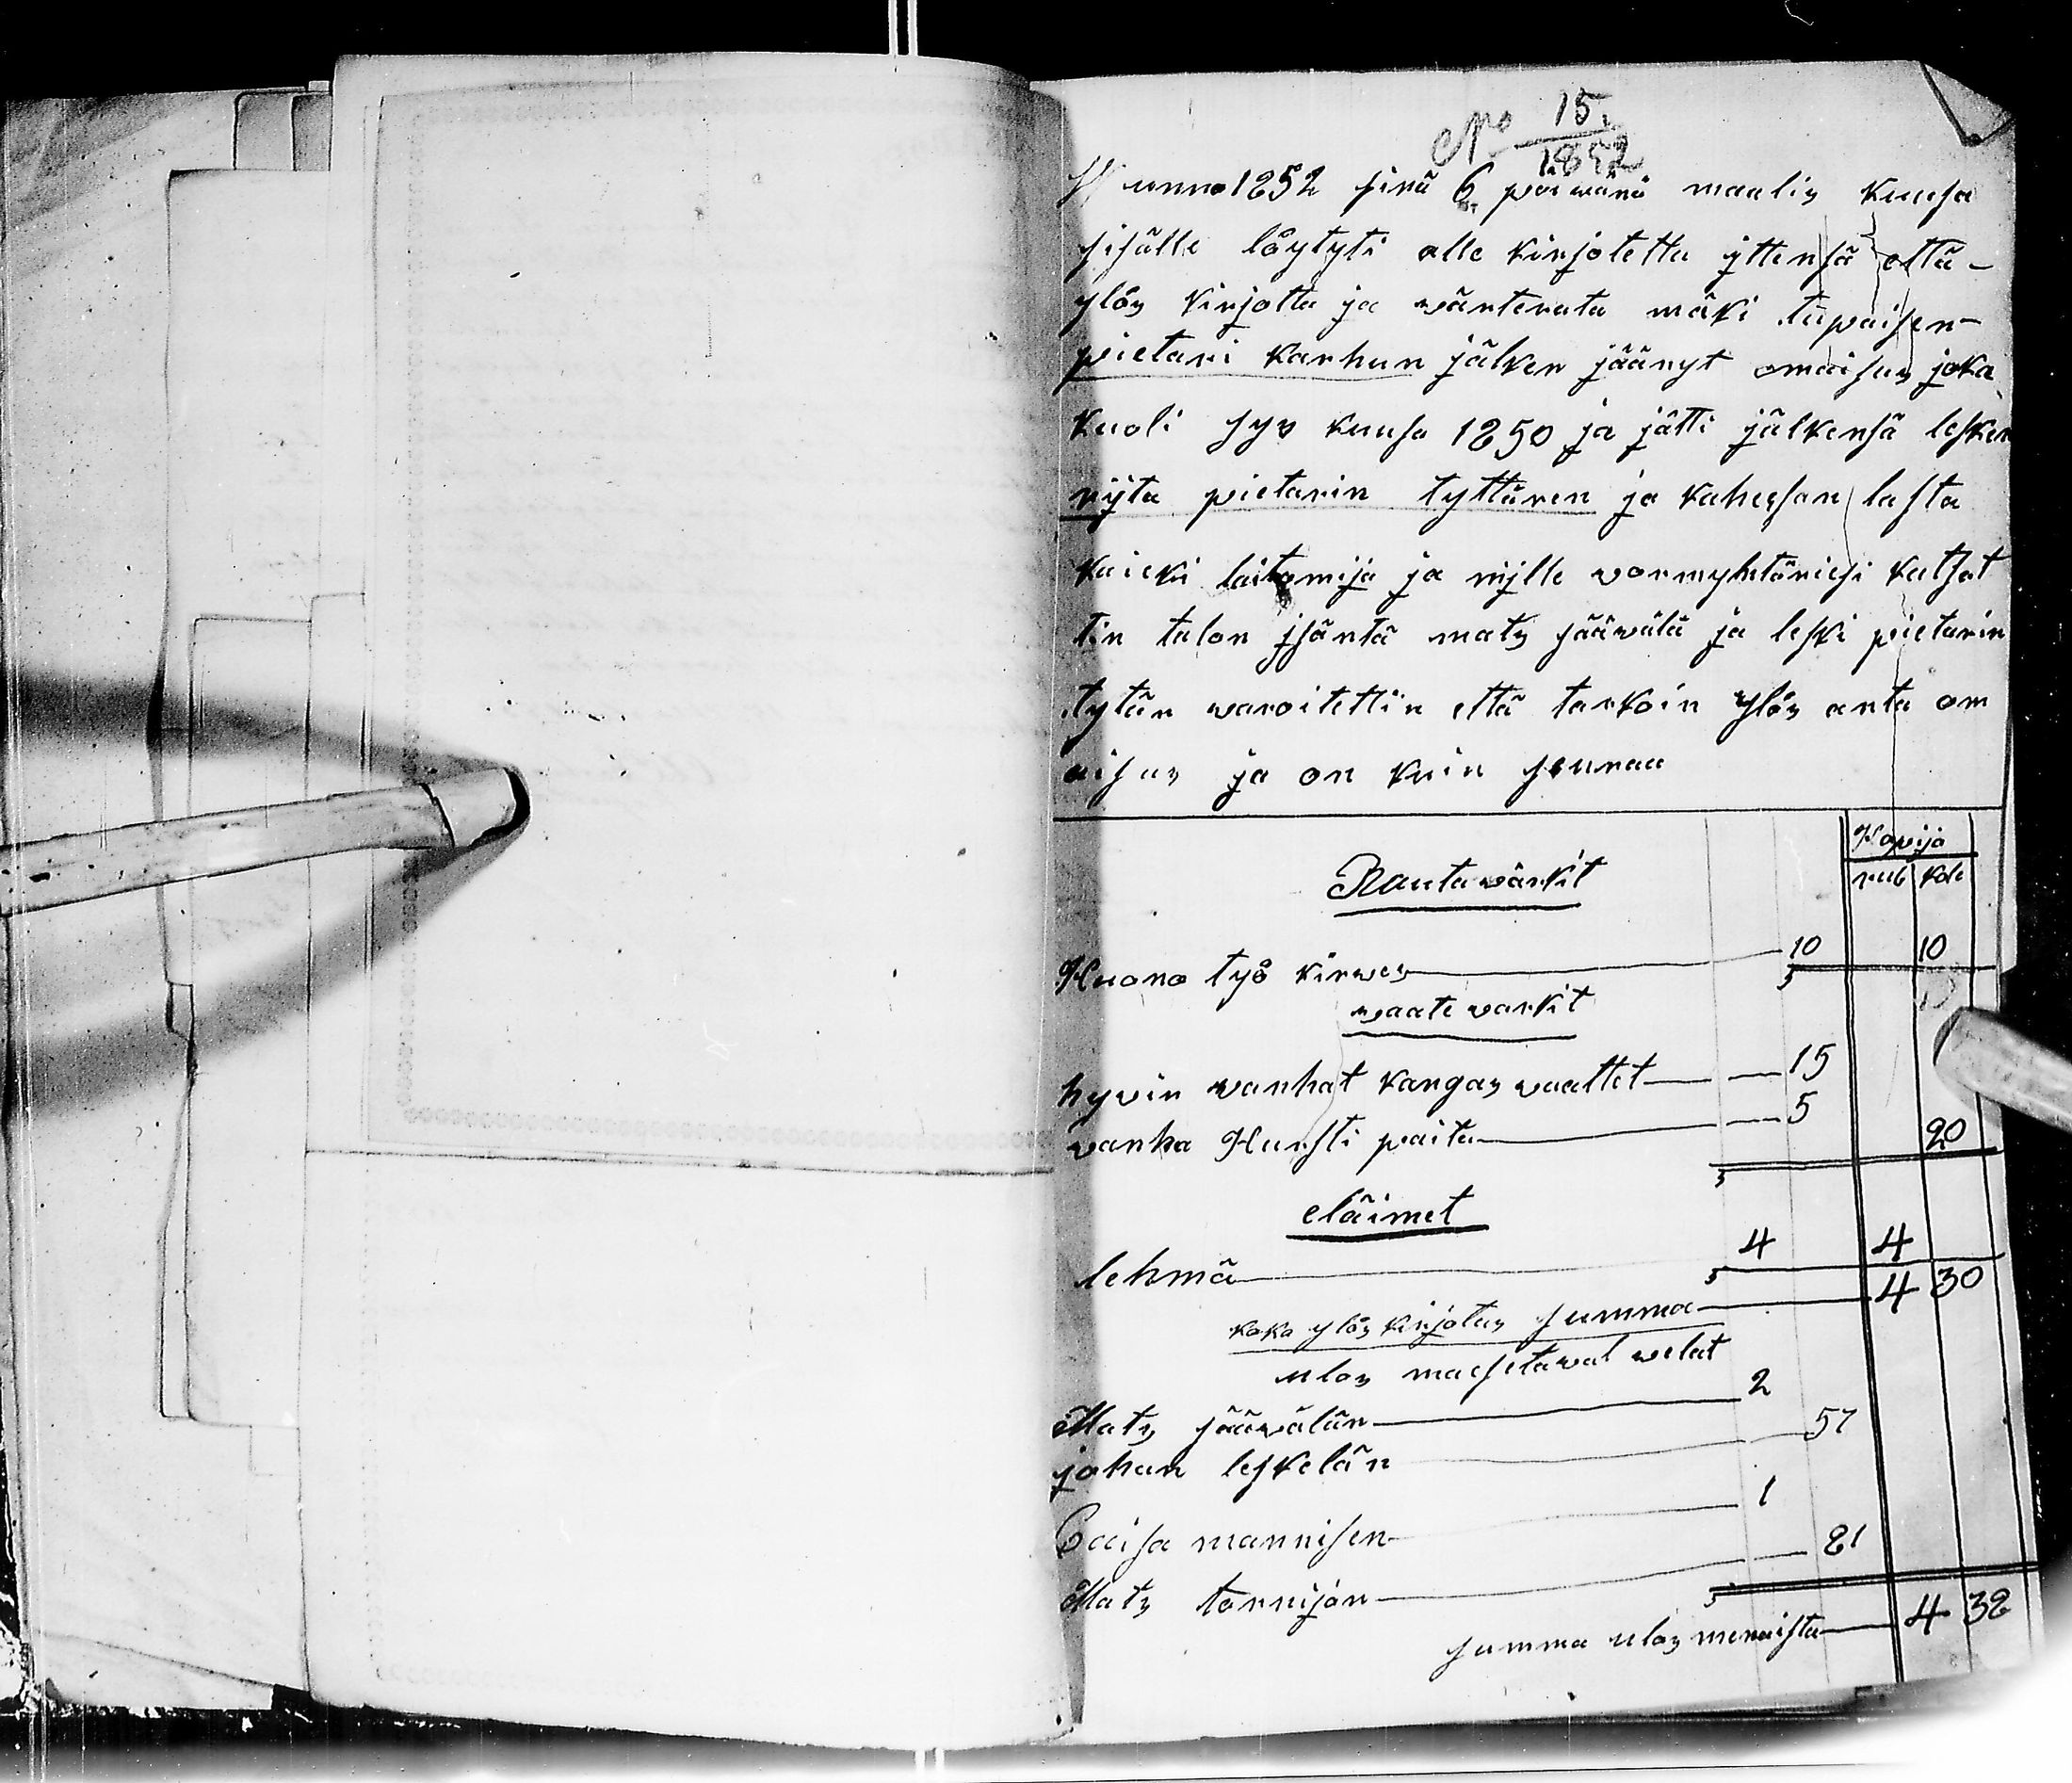 No 15./1852
Wunna 1852 sinä 6 päiwänä maalis kuusa
sisälle löytyti alle kirjotettu yttensä että
ylös kirjotta ja wärterata mäki tupaisen
pietari karhun jälken jäänyt omaisus joka
kuoli sys kuusa 1850 ja jätti jälkensä lesken
rijta pietarin tyttären ja kahessan lasta
kaicki laitamija ja nijlle wormyhtäriesi katsot
tin talon jsäntä mats jääwälä ja leski pietarin
tytär waroitettin että tarkoin ylös anta om
aisus ja on kuin seuraa
Hopija
rub kok
Rauta wärkit
Huono työ kirwes 10 10
waate warkit
hywin wanhat kangas waattet 15
wanha Hursti paita 5
20
eläimet
lehmä 4 4
koko ylös kirjotus summa 4 30
ulos maesetawat welat
Mats jääwälän 2
johan leskelän 57
Caisa mannisen 1
Mats tornijan 81
summa ulos menoista 4 38